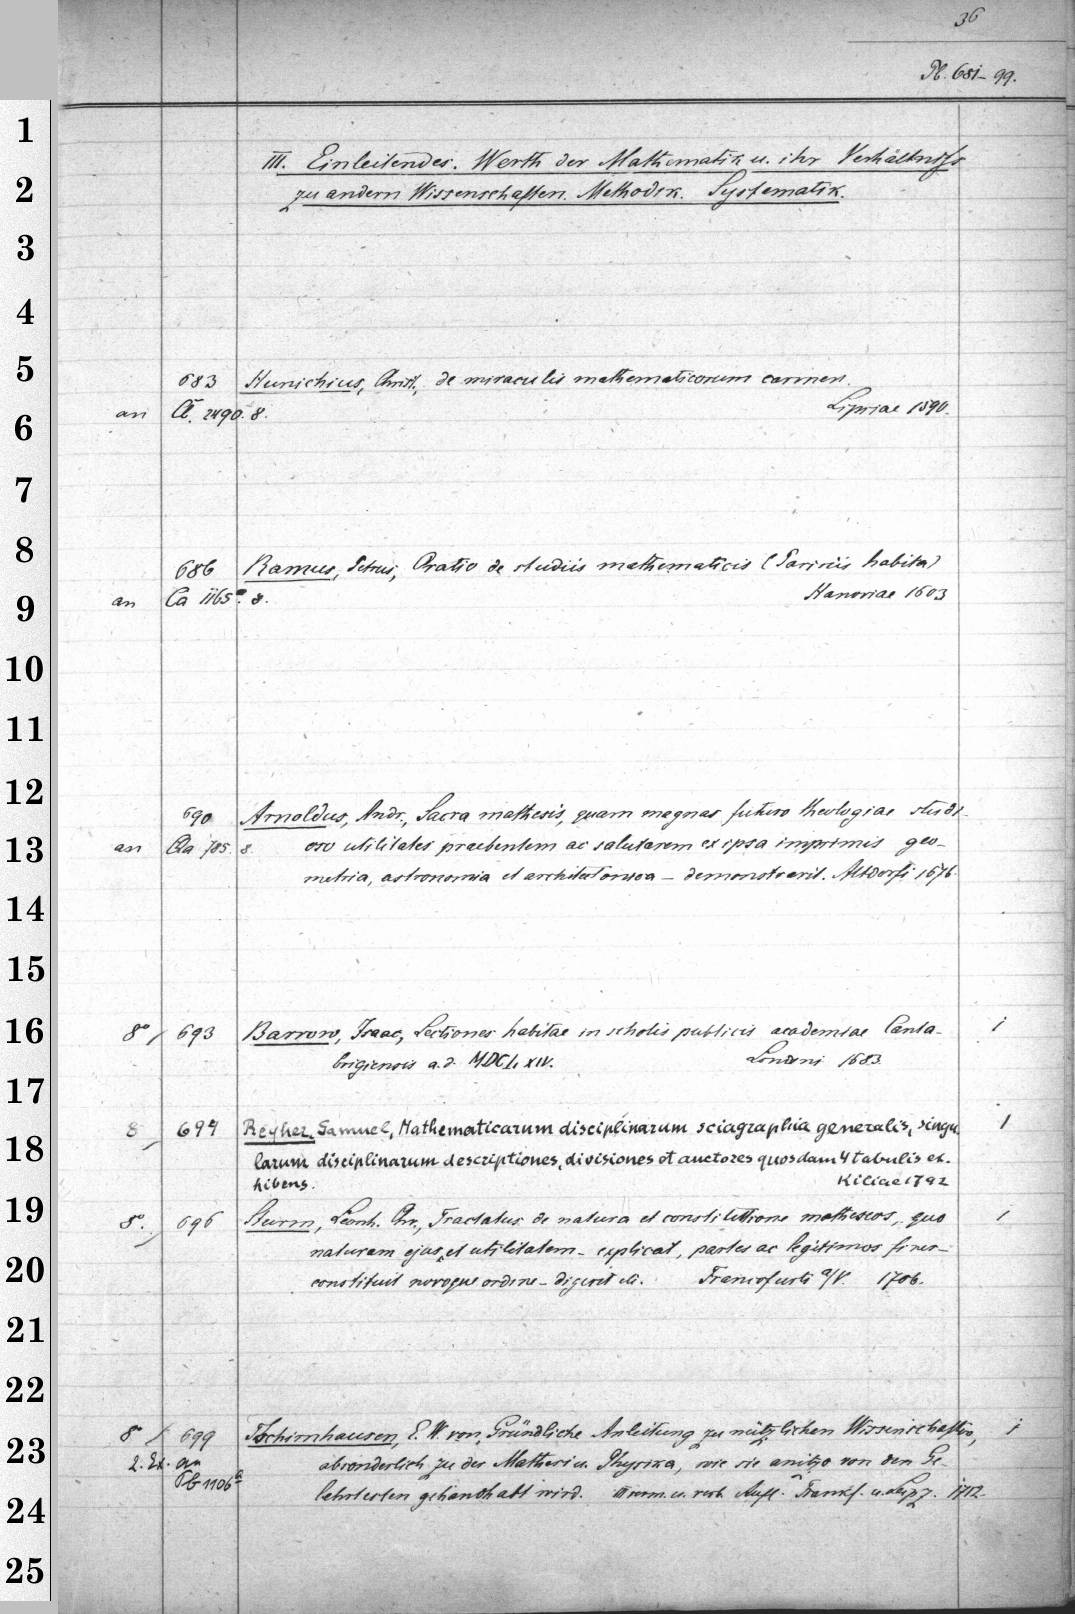 36
Pb. 681-99.
III. Einleitendes. Werth der Mathematik u. ihr Verhältniss
zu andern Wissenschaften. Methodik. Systematik.
683 Hunichius, Christ., de miraculis mathematicorum carmen.
an 2490. 8. Lipsiae 1590.
686 Ramus, Petrus, Oratio de studiis mathematicis (Parisiis habita)
an Ca 1165a. 8. Hanoviae 1603
690 Arnoldus, Andr., Sacra mathesis, quam magnas futuro theologiae studi-
an 785. 8. oso utilitates praebentem ac salutarem ex ipsa imprimis geo-
metria, astronomia et architectonica - demonstraverit. Altdorfi 1676.
8° / 693 Barrow, Isaac, Lectiones habitae in scholis publicis academiae Canta- 1
brigiensis a.d. MDCLXIV. Londini 1683.
8 / 694 Reyher, Samuel, Mathematicarum disciplinarum sciagraphia generalis, singu 1
larum disciplinarum descriptiones, divisiones et auctores quosdam 4 tabulis ex-
hibens. Kiliae 1792
8°. / 696 Sturm, Leonh. Chr., Tractatus de natura et constitutione matheseos, quo 1
naturam ejus, et utilitatem - explicat, partes ac legitimos fines -
constituit novoque ordine - digerit etc. Francofurti a/V. 1706.
8° / 699 Tschirnhausen, E. W. von, Gründliche Anleitung zu nützlichen Wissenschaften, 1
2. Ex. an absonderlich zu der Mathesi u. Physika, wie sie anitzo von den Ge-
Pb 1106a lehrtesten gehandhabt wird. III verm. u. verb. Aufl. Frankf. u. Leipz. 1712.
1
2
3
4
5
6
7
8
9
10
11
12
13
14
15
16
17
18
19
20
21
22
23
24
25